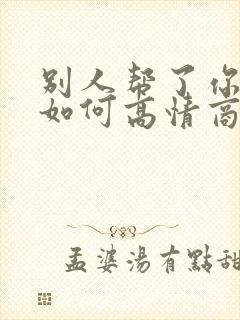 别人帮了你
如何高情商
孟婆湯有點甜